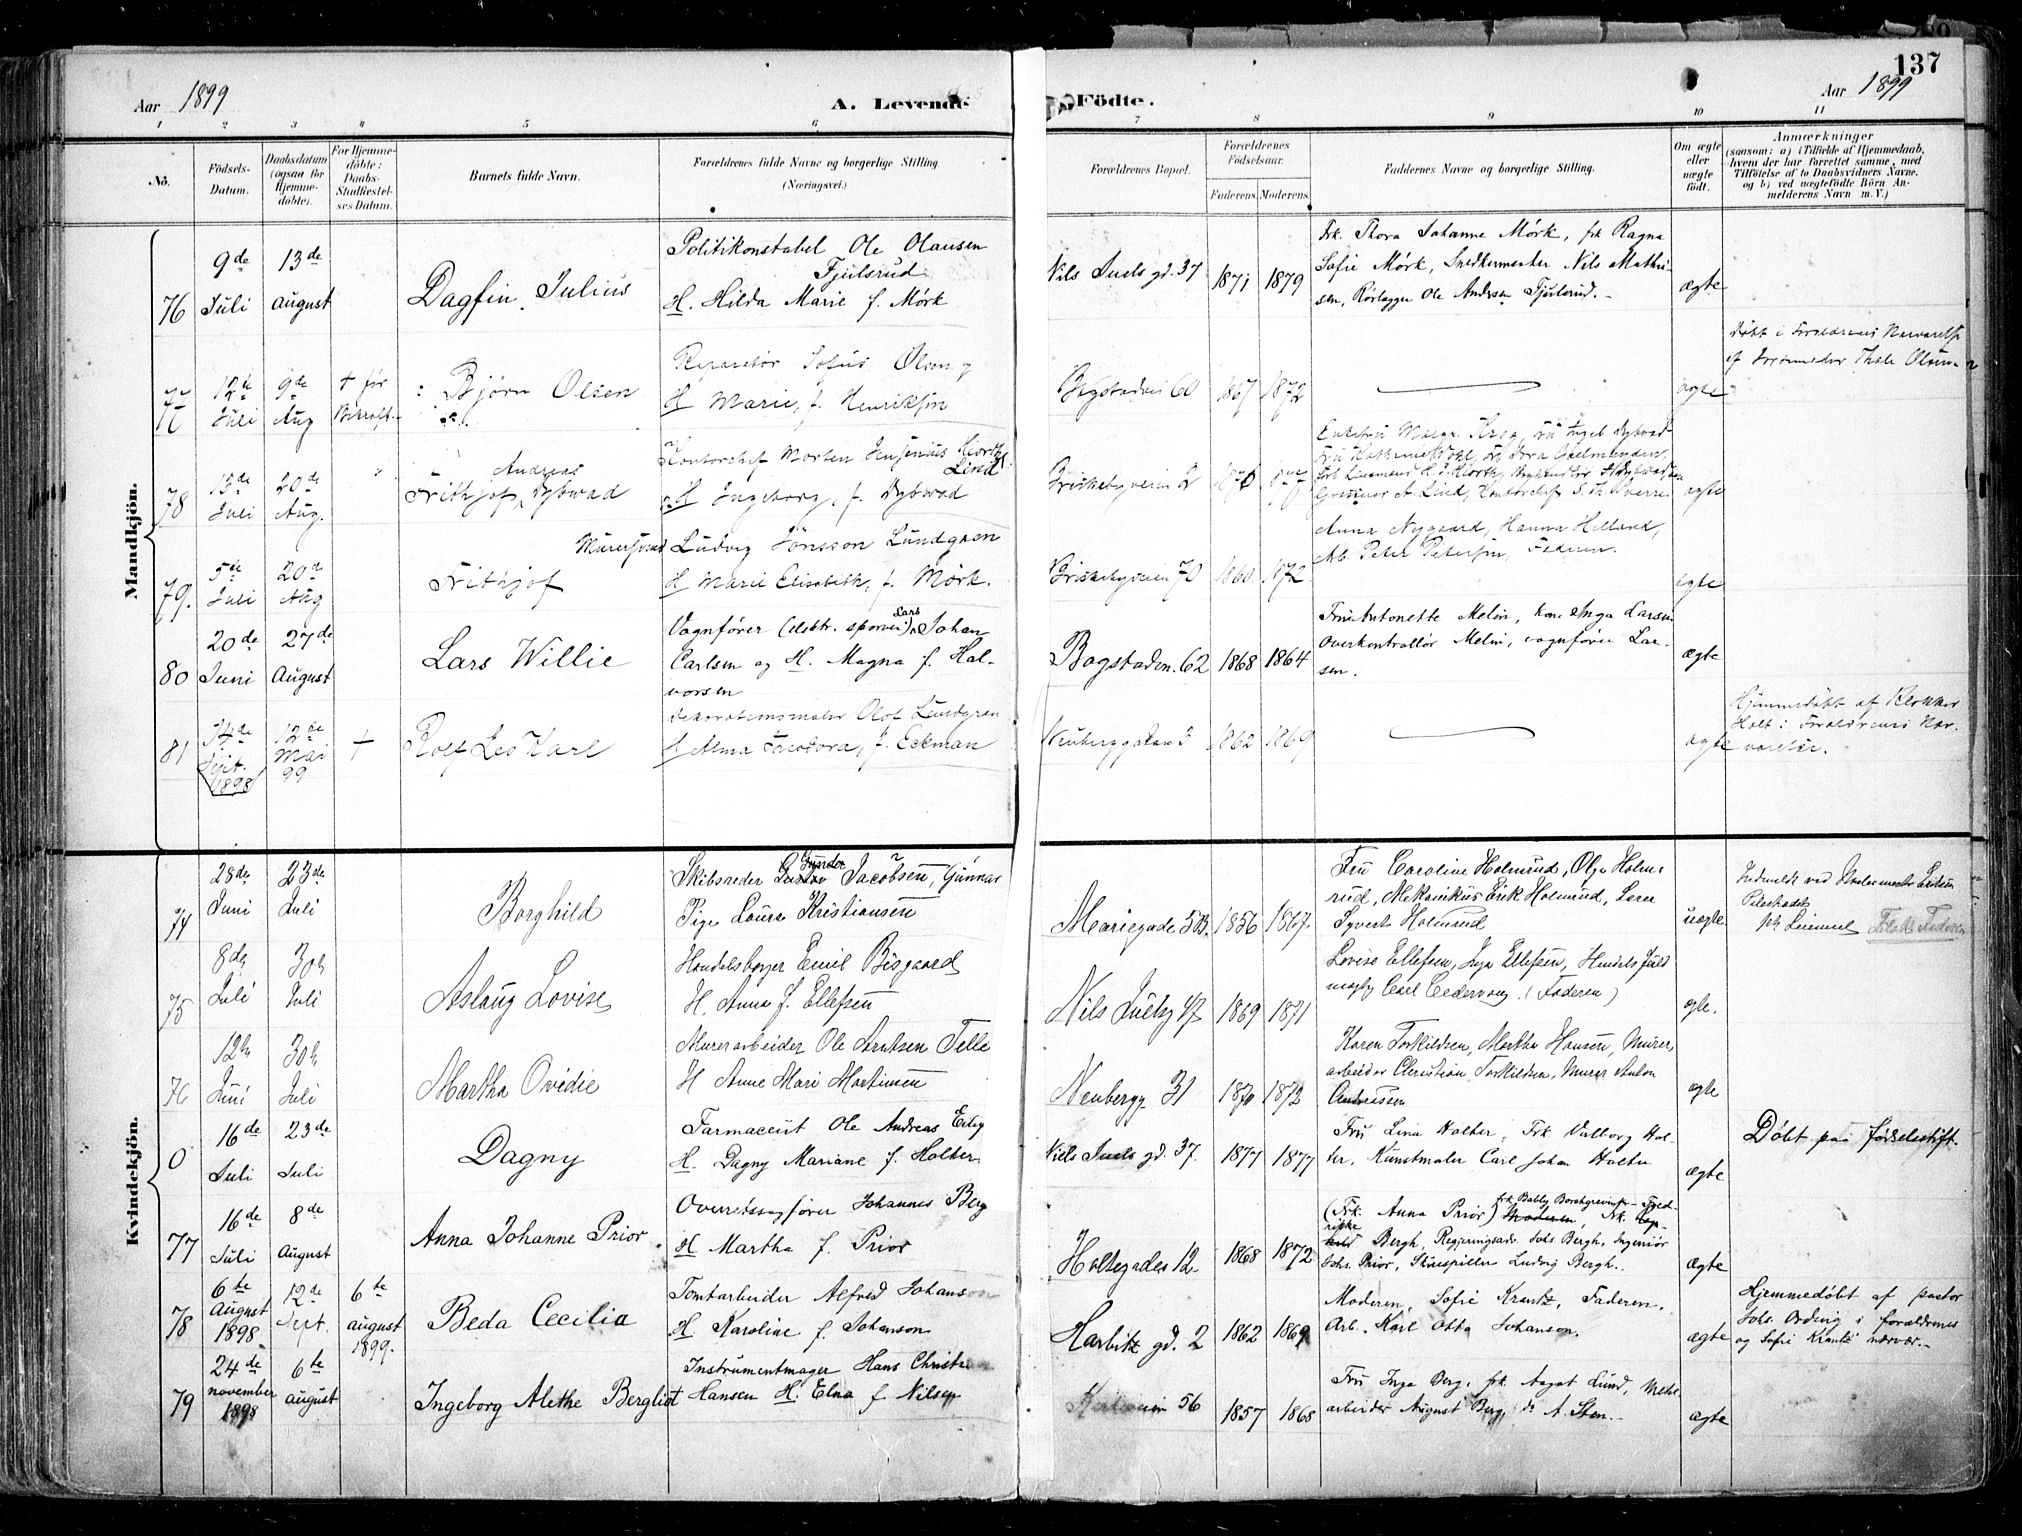 137
Aar 1899
A. Levende Födte.
Aar 1899
1 2 3 4 5 6 7 8 9 10 11
No.
Födsels-Datum.
Daabsdatum (ogsaa for Hjemme-döbte).
For Hjemme-döbte: Daabs-Stadfæstel-ses Datum.
Barnets fulde Navn.
Forældrenes fulde Navne og borgerlige Stilling. (Næringsvei.)
Forældrenes Bopæl.
Forældrenes Födselsaar.
Faderens. Moderens.
Faddernes Navne og borgerlige Stilling.
Om ægte eller uægte födt.
Anmærkninger
(saasom: a) i Tilfælde af Hjemmedaab, hvem der har forrettet samme, med Tilföielse af to Daabsvidners Navne, og b) ved uægtefödte Börn An-melderens Navn m. V.)
Mandkjön.
76 9de Juli 13de August Dagfin Julius
Politikonstabel Ole Olausen Fjeilsrud
H. Hilda Marie f. Mörk
Nils Juels gd. 37 1871 1879
Frk. Thora Johanne Mörk, frk Ragna
Sofie Mörk, Snedkermester Nils Mathi-
sen, Rörlægger Ole Andersen
ægte
77 12te Juli 9de Aug + før
Björn Olsen
Reparatör Sofus Olsen og
H Marie, f. Henriksen
60 1867 1872
ægte
Döbt i Forældrenes Nærværelse
af Jordemoder Olsen
78 13de Juli 20de Aug.
Andreas
Frithjof Dybwad
Kontorchef Morten Jensenius Hiorth
Lind
H Ingeborg, f. Dybwad
Briskebyveien 2
Grosserer A. Lind, Kontorchef S. Th. Sverre
ægte
79. 5te Juli 20de Aug
Frithjof
Murersvend Ludvig Jönsson Lundgren
H Marie Elisabeth, f. Mörk.
Briskebyveien 70 1860 1872
Anna Nygaard, Hanna Helland,
Ab. Peter Petersen, Faderen.
ægte
80 20de Juni 27de August
Lars Willie
Vognfører (elektr. sporvei) Lars Johan
Carlsen og H. Magna f. Hal-
vorsen
Bogstadvn. 62 1868 1864
Fru Antonette Melin, kone Inga Larsen
Overkontrollör Melin, vognfører Lar-
sen.
ægte
81 14de Sept. 1898 12de Mai 99 +
Rolf Leo Karl
Dekorationsmaler Olof Lundgren
H Alma Teodora, f. Eckman
Neuberggaden 3 1862 1869
ægte
Hjemmedöbt af Klokker
Holt i Forældrenes Nær-
værelse.
Kvindekjön.
74 28de Juni 23de Juli
Borghild
Skibsreder Jacobsen, Gunnar
Pige Laura Kristiansen
Mariegade 5B. 1856 1867.
Fru Caroline Holmrud, Olga Holm-
rud, Mekanikus Erik Holmrud, Lærer
Syvert Holmrud
uægte
75 8de Juli 30te Juli
Aslaug Lovise
Handelsborger Emil Bisgaard
H. Anna f. Ellefsen
Nils Juelsg 47 1869 1871
Lovise Ellefsen, Inga Ellefsen, Handelsfuld
mægtig Carl Cedervang. (Faderen)
ægte.
76 12te Juni 30te Juli
Martha Ovidie
Murerarbeider Ole Arntsen Telle
H Anne Mari Martinsen
Neubergg 31 1870 1872
Karen Torkildsen, Martha Hansen, Murer
arbeider Christian Torkildsen, Murer Anton
Andreasen
ægte
0 16de Juli 23de Juli
Dagny
Farmaceut Ole Andreas
H. Dagny Mariane f. Holter
Niels Juels gd. 37. 1877 1877
Fru Lina Holter, Frk. Valborg Hol-
ter, Kunstmaler Carl Johan Holter
ægte
Döbt paa fødselsstift.
77 16de Juli 8de August
Anna Johanne Prior
Overretssagfører Johannes Berg
H Martha f. Prior
Holtegades 12 1868 1872
(Frk. Anna Prior) Moderen, Frk.
Bergh, Regjeringsadv. Johs Bergh, Ingeniör
Johs. Prior, Skuespiller Ludvig Bergh.
ægte
78 6te August 1898 12de Sept. 6te august 1899.
Beda Cecilia
Tomtarbeider Alfred Johanson
H Karoline f. Johanson
Harbitz gd. 2 1862 1869
Moderen, Sofie Krantz, Faderen,
Arb. Karl Otto Johanson.
ægte
Hjemmedöbt af pastor
Johs. Ording i forældrenes
og Sofie Krantz' nærvær.
79 24de november 1898 6te august
Ingeborg Alethe Bergliot
Instrumentmager Hans Christian
Hansen H. Elna f. Nilsen
56 1857 1868
Fru Inga Berg, frk Aagot Lund, Mek.
arbeider August Berg, do A. Sten.
ægte